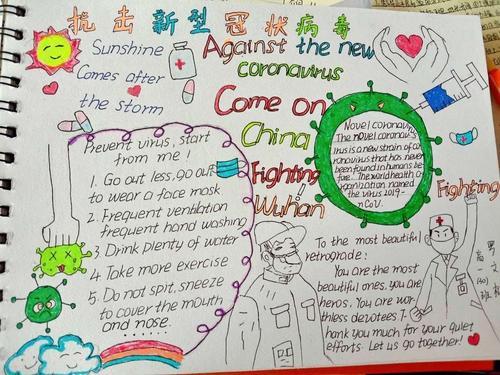 抗击新型冠状病毒
Sunshine
Comes after
the storm
Against the new
coronavirus
Come on
China
Fighting
Wuhan
!
Prevent virus, start
from me !
1. Go out less, go out
to wear a face mask
2. Frequent ventilation
frequent hand washing
3. Drink plenty of water
4. Take more exercise
5. Do not spit, sneeze
to cover the mouth
and nose.
......
Novel coronavirus
The novel coronav
irus is a new strain of co
ronavirus that has never
been found in humans be
fore. The world health o
rganization named
the virus 2019-
nCoV.
Fighting
To the most beautiful
retrograde:
You are the most
beautiful ones, you are
heros. You are wor
thless devotees T
hank you much for your quiet
efforts. Let us go together!
高一
班